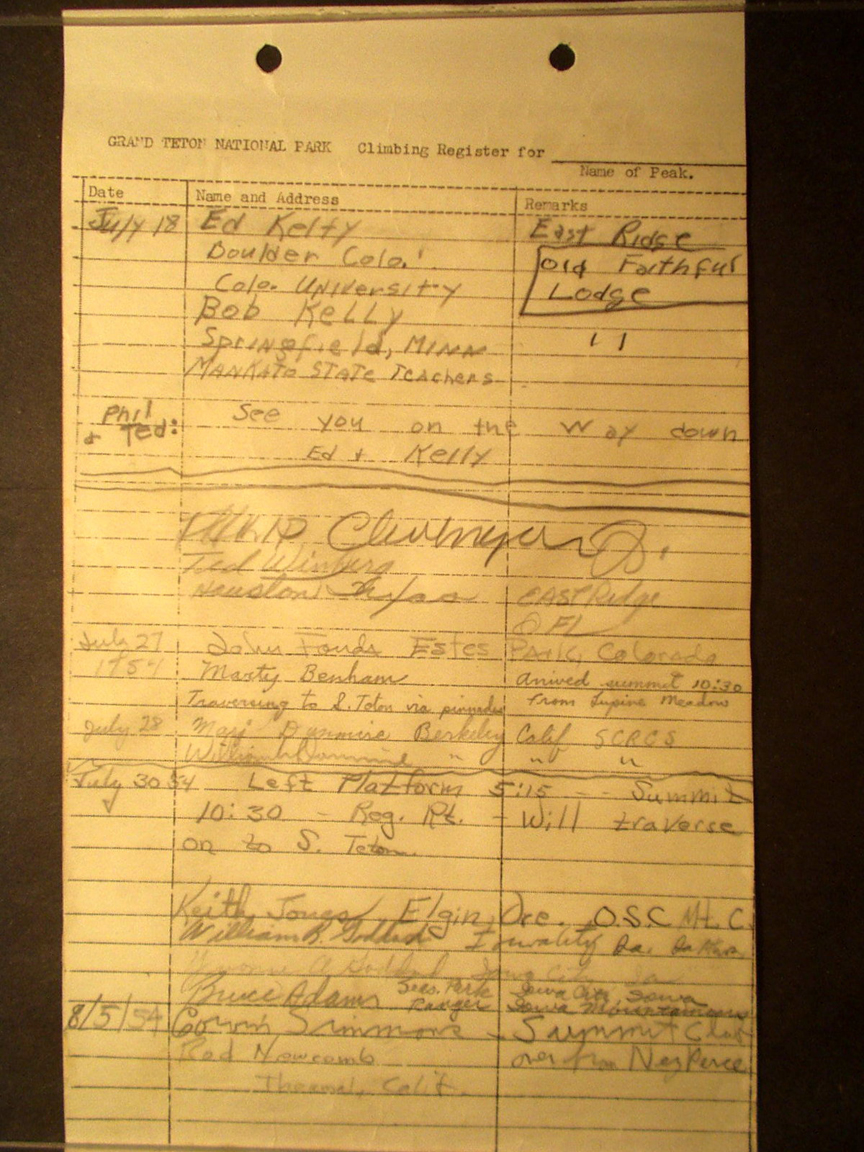 GRAND TETON NATIONAL PARK Climbing Register for
Name of Peak.
Date Name and Address Remarks
July 18 Ed Kelty East Ridge
Boulder Colo. Old Faithful
Colo. University Lodge
Bob Kelly
Springfield, MINN " "
MANKATO STATE Teachers
Phil & Ted: See you on the way down
Ed & Kelly
Ted
Houston Texas EAST Ridge
July 27 John Estes Park, Colorado
1954 Marty Benham Arrived summit 10:30
Traversing to S. Teton via pinnacles from Lupine Meadow
July 28 Berkeley Calif
William " " "
July 30 54 Left Platform 5:15 -- Summit
10:30 - Reg. Rt. - Will traverse
on to S. Teton.
Keith Jones Elgin, Ore. O.S.C Mt. C.
William B. Goddard Iowa City Ia.
Goddard Iowa City Ia
Bruce Adams Seas. Park Ranger Iowa City, Iowa Iowa Mountaineers
8/5/54 Simmons - Summit
Rod Newcomb over from Nez Perce
Thermal, Calif.